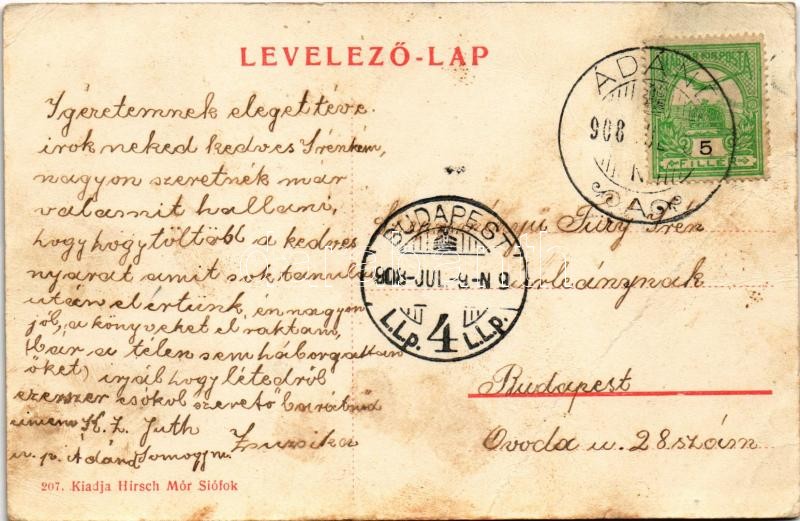 LEVELEZŐ-LAP
Igéretemnek eleget téve
irok neked kedves Irénkém,
nagyon szeretnék már
valamit hallani,
hogy hogy töltöd a kedves
nyarat amit sok tanulás
után elértünk, én nagyon
jól, a könyveket el raktam,
(bár a télen sem háborgattam
őket) irjál hogy létedről
ezerszer csókol szerető barátnőd
cimem K. Z. Juth Zsuzsika
u. p. Ádánd Somogy m.
207. Kiadja Hirsch Mór Siófok
ÁDÁN
908 JUL
N
A
5
FILLÉR
BUDAPEST
908-JUL-9-N 9
L.L.p. 4 L.L.p.
Irén
urleánynak
Budapest
Ovoda u. 28 szám